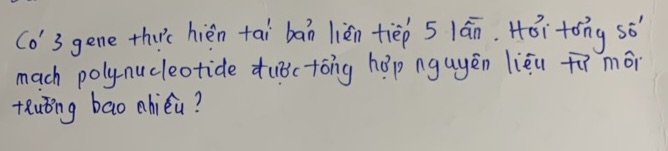 Có 3 gene thực hiện tái bản liên tiếp 5 lần. Hỏi tổng số
mạch polynucleotide được tổng hợp nguyên liệu từ môi
trường bao nhiêu?